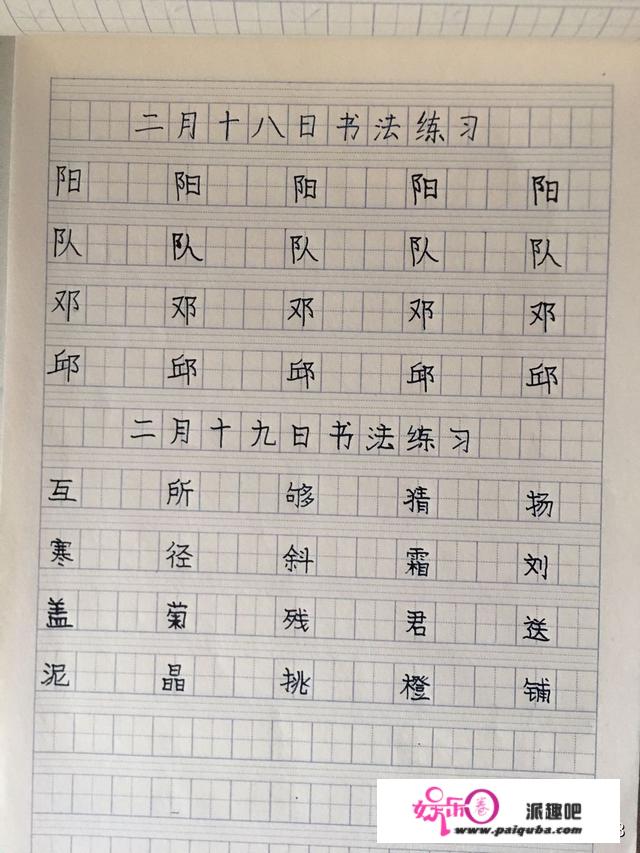 二月十八日书法练习
阳 阳 阳 阳 阳
队 队 队 队 队
邓 邓 邓 邓 邓
邱 邱 邱 邱 邱
二月十九日书法练习
互 所 够 猜 扬
寒 径 斜 霜 刘
盖 菊 残 君 送
泥 晶 挑 橙 铺
娱乐圈 派趣吧
www.paiquba.com
3